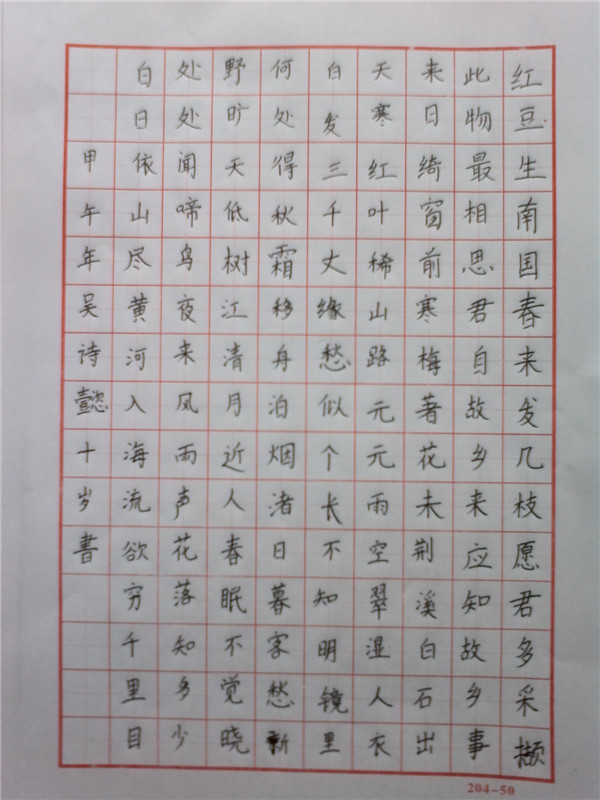 红豆生南国春来发几枝愿君多采撷
此物最相思君自故乡来应知故乡事
来日绮窗前寒梅著花未荆溪白石出
天寒红叶稀山路元元雨空翠湿人衣
白发三千丈缘愁似个长不知明镜里
何处得秋霜移舟泊烟渚日暮客愁新
野旷天低树江清月近人春眠不觉晓
处处闻啼鸟夜来风雨声花落知多少
白日依山尽黄河入海流欲穷千里目
甲午年吴诗懿十岁書
204-50